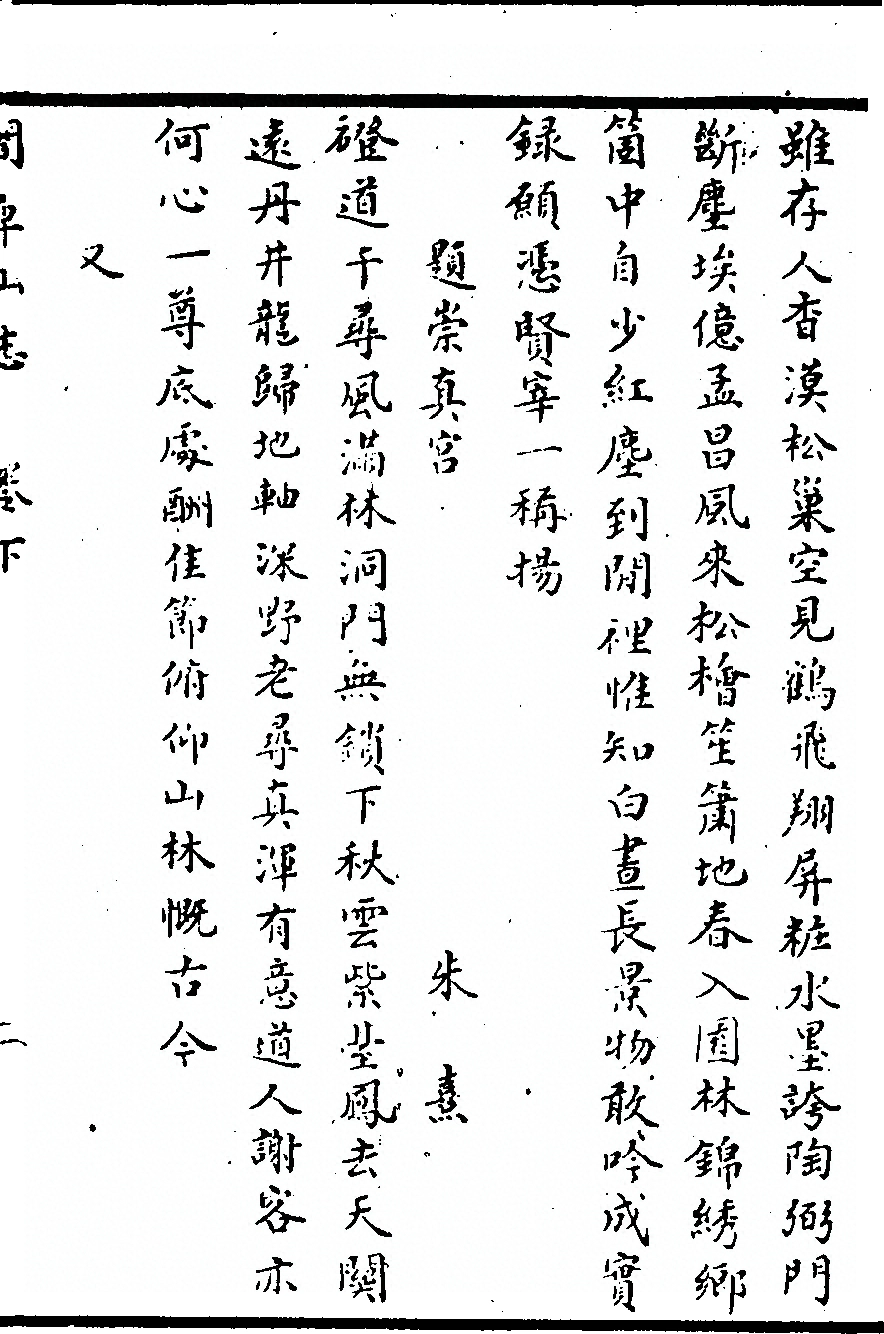 雖存人杳漠松巢空見鶴飛翔屏粧水墨誇陶弼門
斷塵埃億孟昌風來松檜笙簫地春入園林錦綉鄉
箇中自少紅塵到閒裡惟知白晝長景物敢吟成實
録願憑賢宰一稱揚
題崇真宮 朱熹
磴道千尋風滿林洞門無鎖下秋雲紫垒鳳去天關
遠丹井龍歸地軸深野老尋真渾有意道人謝客亦
何心一尊底處酬佳節俯仰山林慨古今
又
閤皁山志 卷下 二